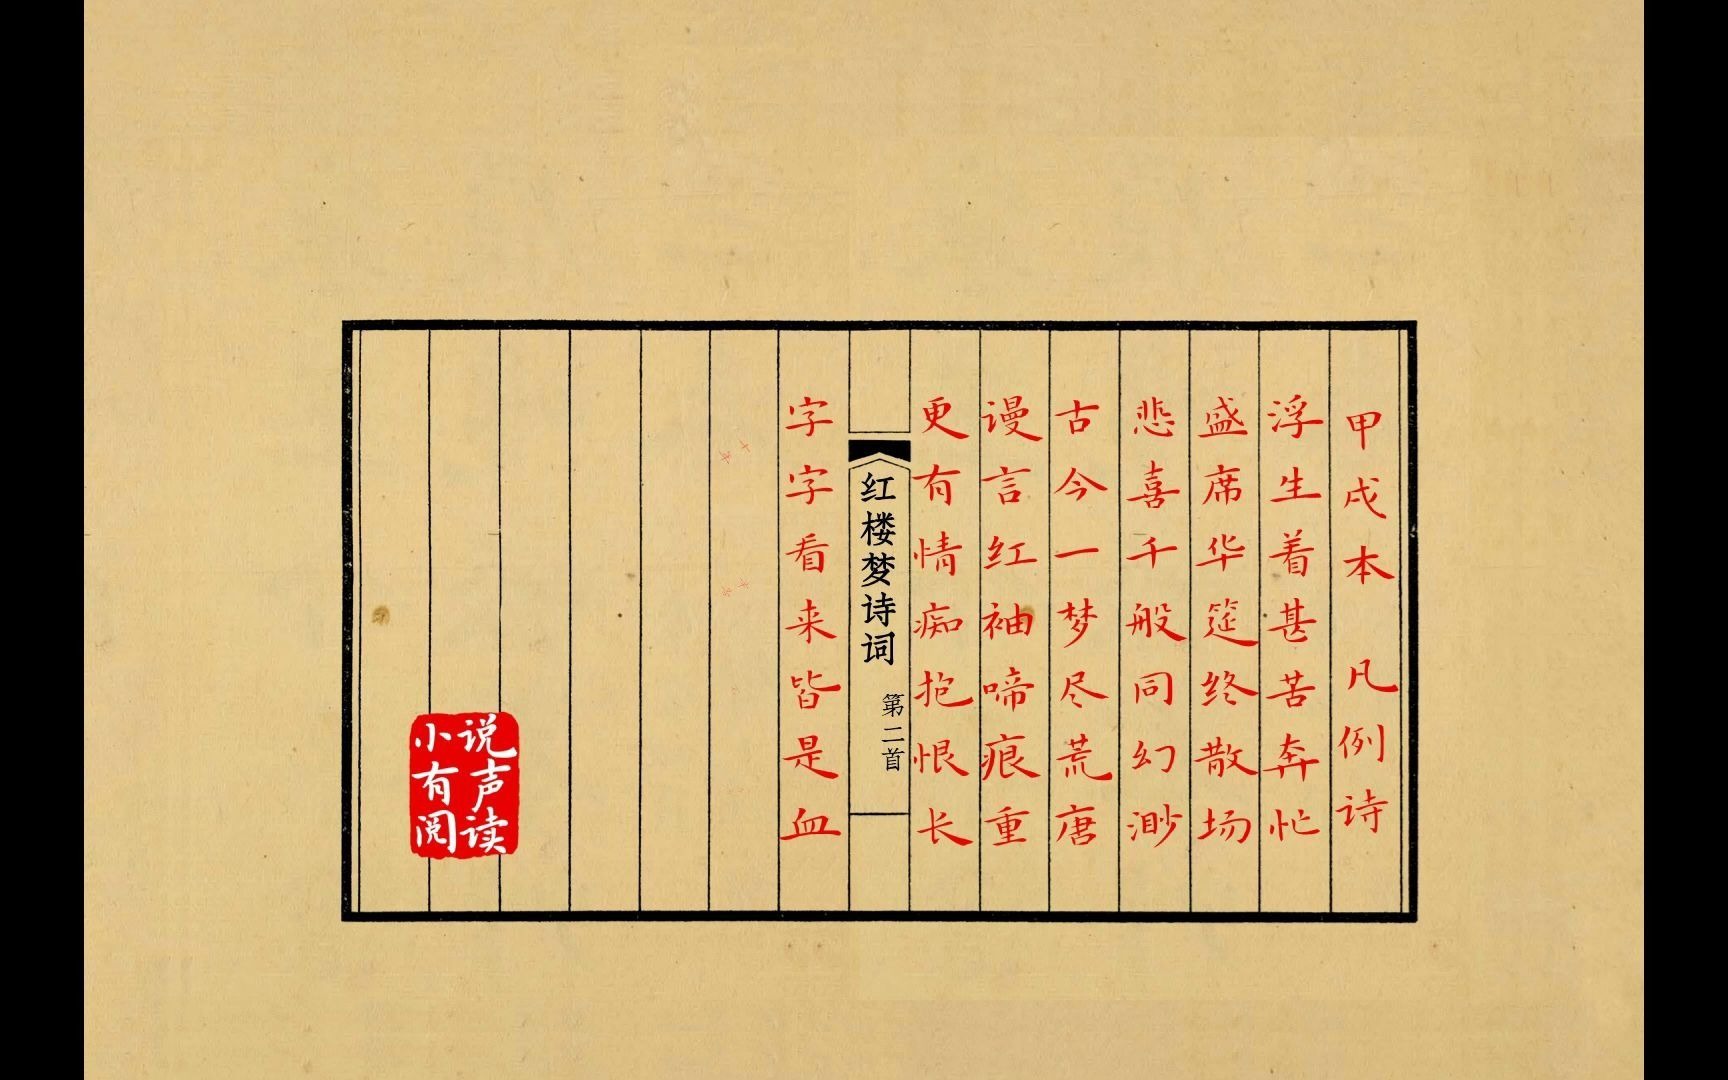 甲戌本 凡例诗
浮生着甚苦奔忙
盛席华筵终散场
悲喜千般同幻渺
古今一梦尽荒唐
谩言红袖啼痕重
更有情痴抱恨长
红楼梦诗词
第二首
字字看来皆是血
小说有声阅读